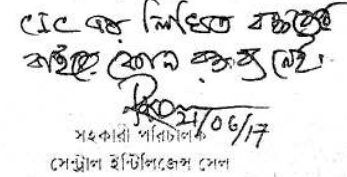 CIC এর লিখিত বক্তব্যের
বাইরে কোন বক্তব্য নেই।
21/06/17
সহকারী পরিচালক
সেন্ট্রাল ইন্টিলিজেন্স সেল